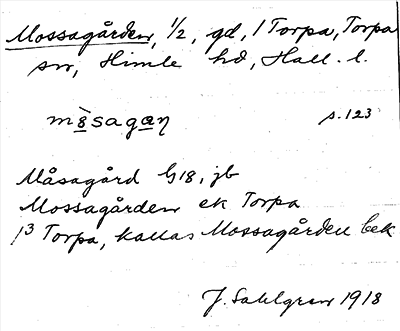 Mossagården, 1/2, gd, 1 Torpa, Torpa
sn, Himle hd, Hall. l.
s. 123
Måsagård G18, jb
Mossagården ek Torpa
1³ Torpa, kallas Mossagården bek
J. Sahlgren 1918